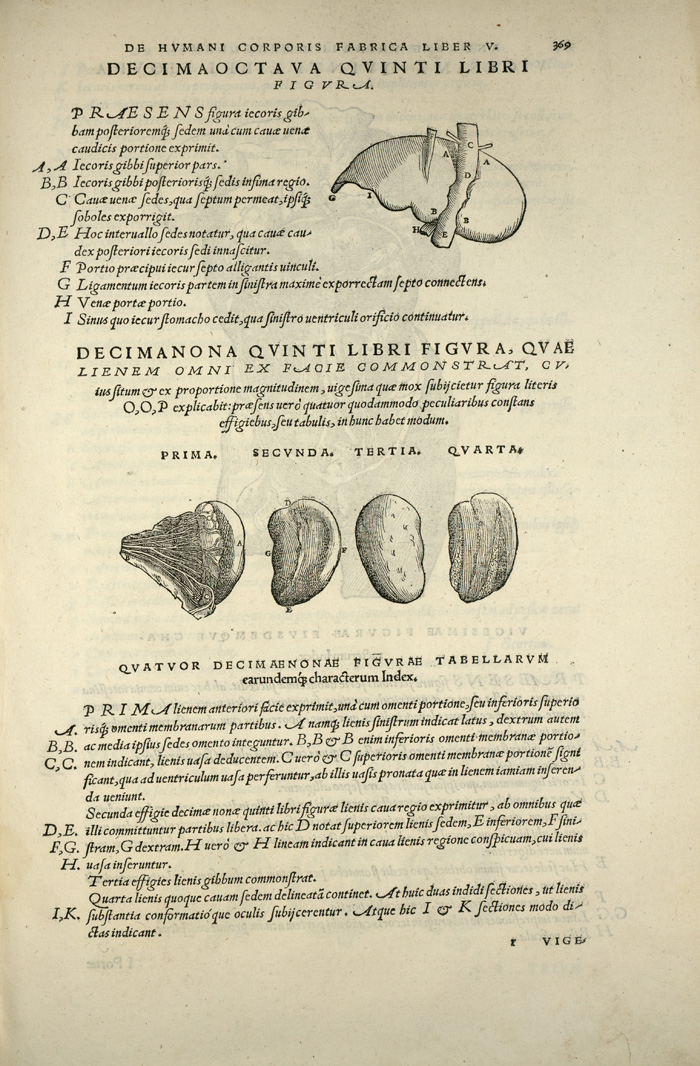 DE HVMANI CORPORIS FABRICA LIBER V. 369
DECIMAOCTAVA QVINTI LIBRI
FIGVRA.
PRAESENS figura iecoris gib-
bam posterioremq́; sedem unà cum cauæ uenæ
caudicis portione exprimit.
A, A Iecoris gibbi superior pars.
B, B Iecoris gibbi posteriorisq́; sedis infima regio.
C Cauæ uenæ sedes, qua septum permeat, ipsiq́;
soboles exporrigit.
D, E Hoc interuallo sedes notatur, qua cauæ cau-
dex posteriori iecoris sedi innascitur.
F Portio præcipui iecur septo alligantis uinculi.
G Ligamentum iecoris partem in sinistra maximè exporrectam septo connectens.
H Venæ portæ portio.
I Sinus quo iecur stomacho cedit, qua sinistro uentriculi orificio continuatur.
A
C
A
D
G
I
B
B
H
E
DECIMANONA QVINTI LIBRI FIGVRA, QVAE
LIENEM OMNI EX FACIE COMMONSTRAT, CV-
ius situm & ex proportione magnitudinem, uigesima quæ mox subijcietur figura literis
O, O, P explicabit: præsens uerò quatuor quodammodo peculiaribus constans
effigiebus, seu tabulis, in hunc habet modum.
PRIMA. SECVNDA. TERTIA. QVARTA.
A
B
D
G
F
E
QVATVOR DECIMAENONAE FIGVRAE TABELLARVM
earundemq́; characterum Index.
PRIMA lienem anteriori facie exprimit, unà cum omenti portione, seu inferioris superio
A. risq́; omenti membranarum partibus. A namq́; lienis sinistrum indicat latus, dextrum autem
B, B. ac media ipsius sedes omento integuntur. B, B & B enim inferioris omenti membranæ portio-
C, C. nem indicant, lienis uasa deducentem. C uerò & C superioris omenti membranæ portionē signi
ficant, qua ad uentriculum uasa perferuntur, ab illis uasis pronata quæ in lienem iamiam inseren-
da ueniunt.
Secunda effigie decimæ nonæ quinti libri figuræ lienis caua regio exprimitur, ab omnibus quæ
D, E. illi committuntur partibus libera. ac hic D notat superiorem lienis sedem, E inferiorem, F sini-
F, G. stram, G dextram. H uerò & H lineam indicant in caua lienis regione conspicuam, cui lienis
H. uasa inseruntur.
Tertia effigies lienis gibbum commonstrat.
Quarta lienis quoque cauam sedem delineatā continet. At huic duas indidi sectiones, ut lienis
I, K. substantia conformatio'que oculis subijcerentur. Atque hic I & K sectiones modo di-
ctas indicant.
r VIGE-